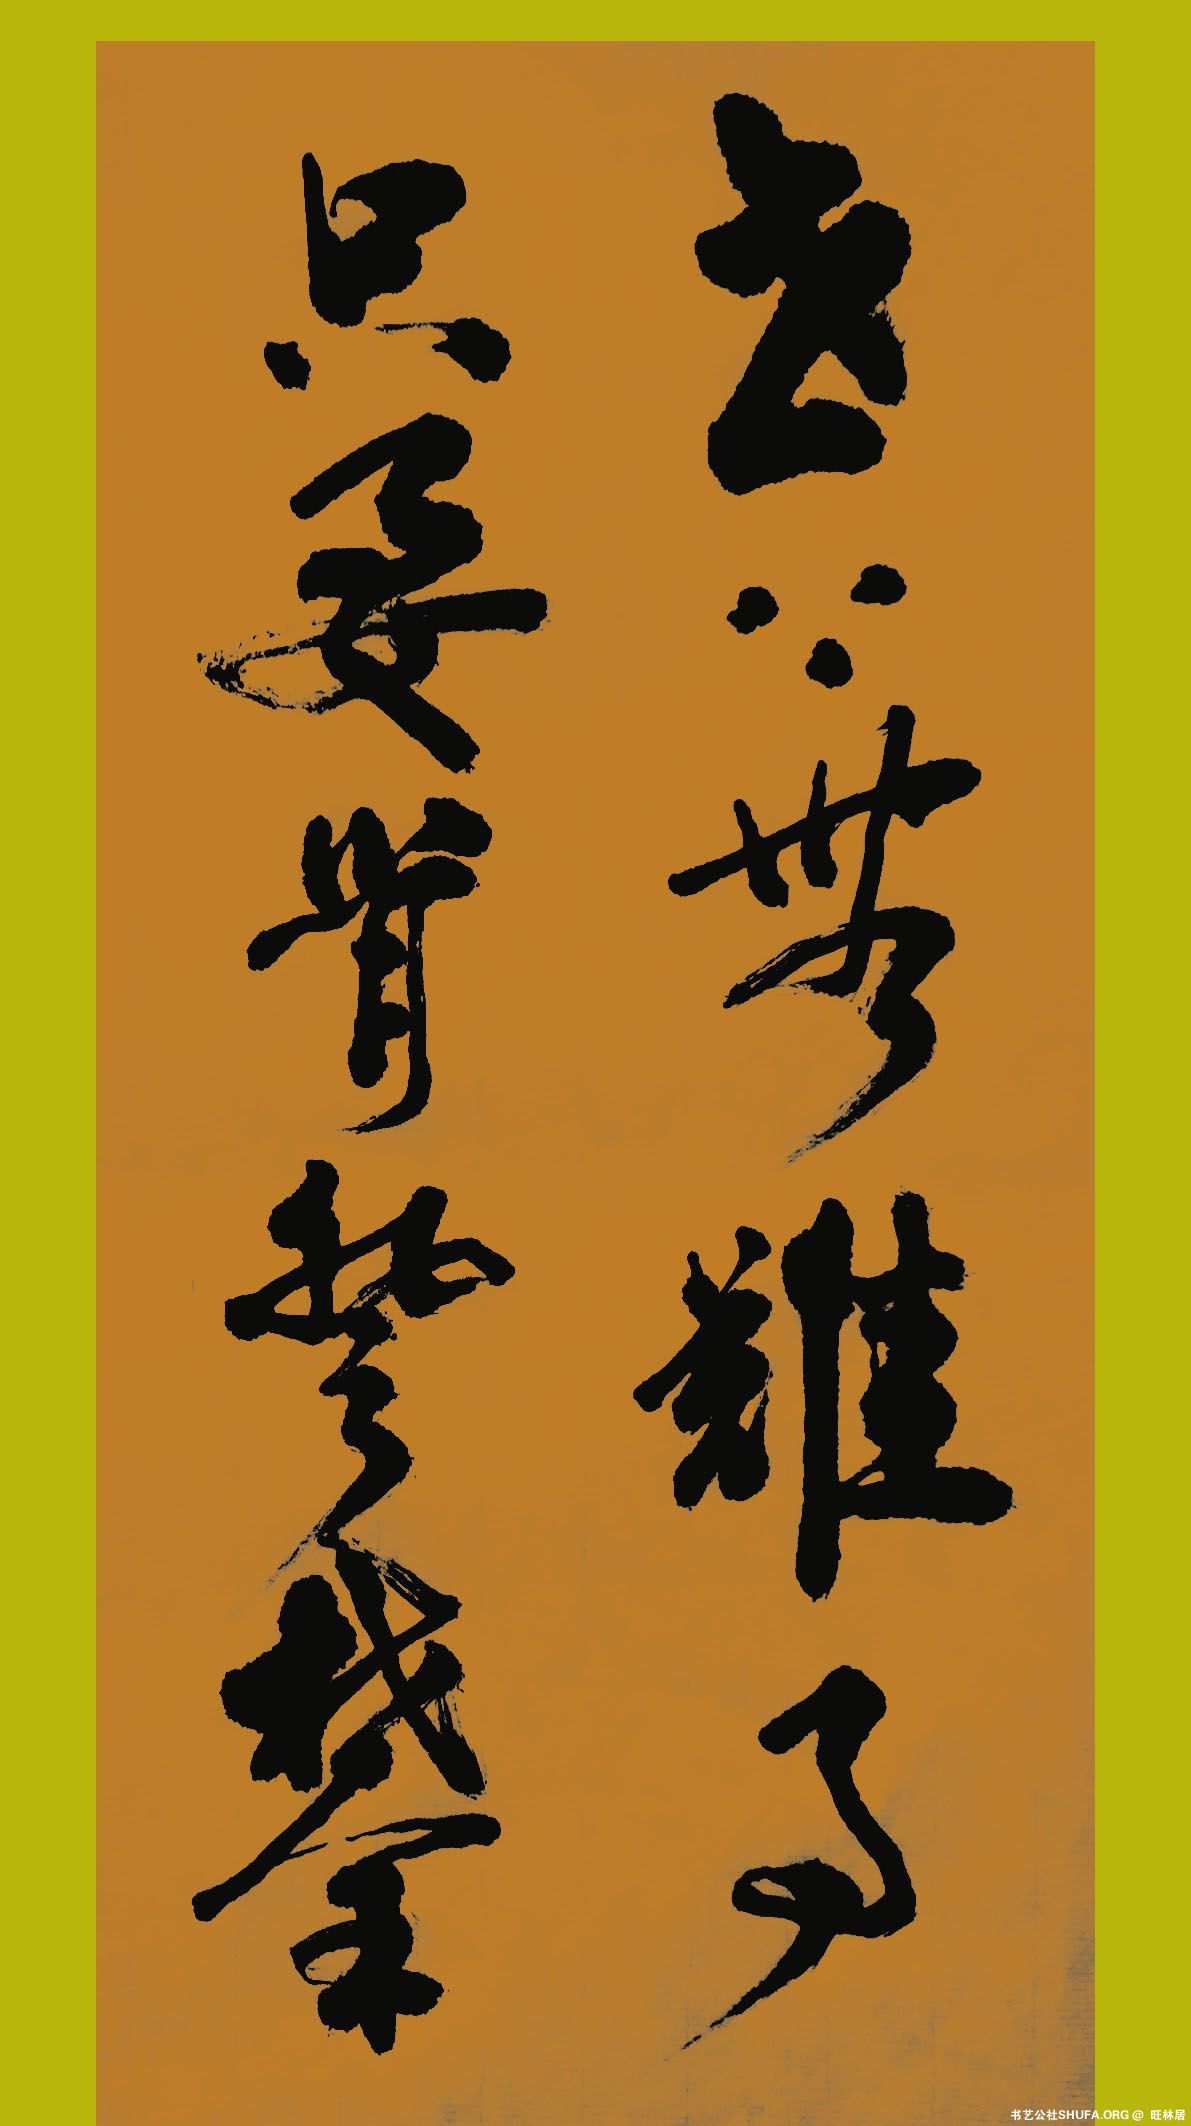 世上無難事
只要肯登攀
书艺公社SHUFA.ORG @ 旺林居